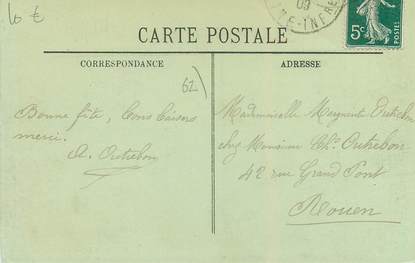 10 €
09
INFRE
5c
POSTES
CARTE POSTALE
CORRESPONDANCE
ADRESSE
62)
Bonne fête, bons baisers
merci.
A. Outrebon
Mademoiselle Outrebon
chez Monsieur Ch. Outrebon
42 rue Grand Pont
Rouen